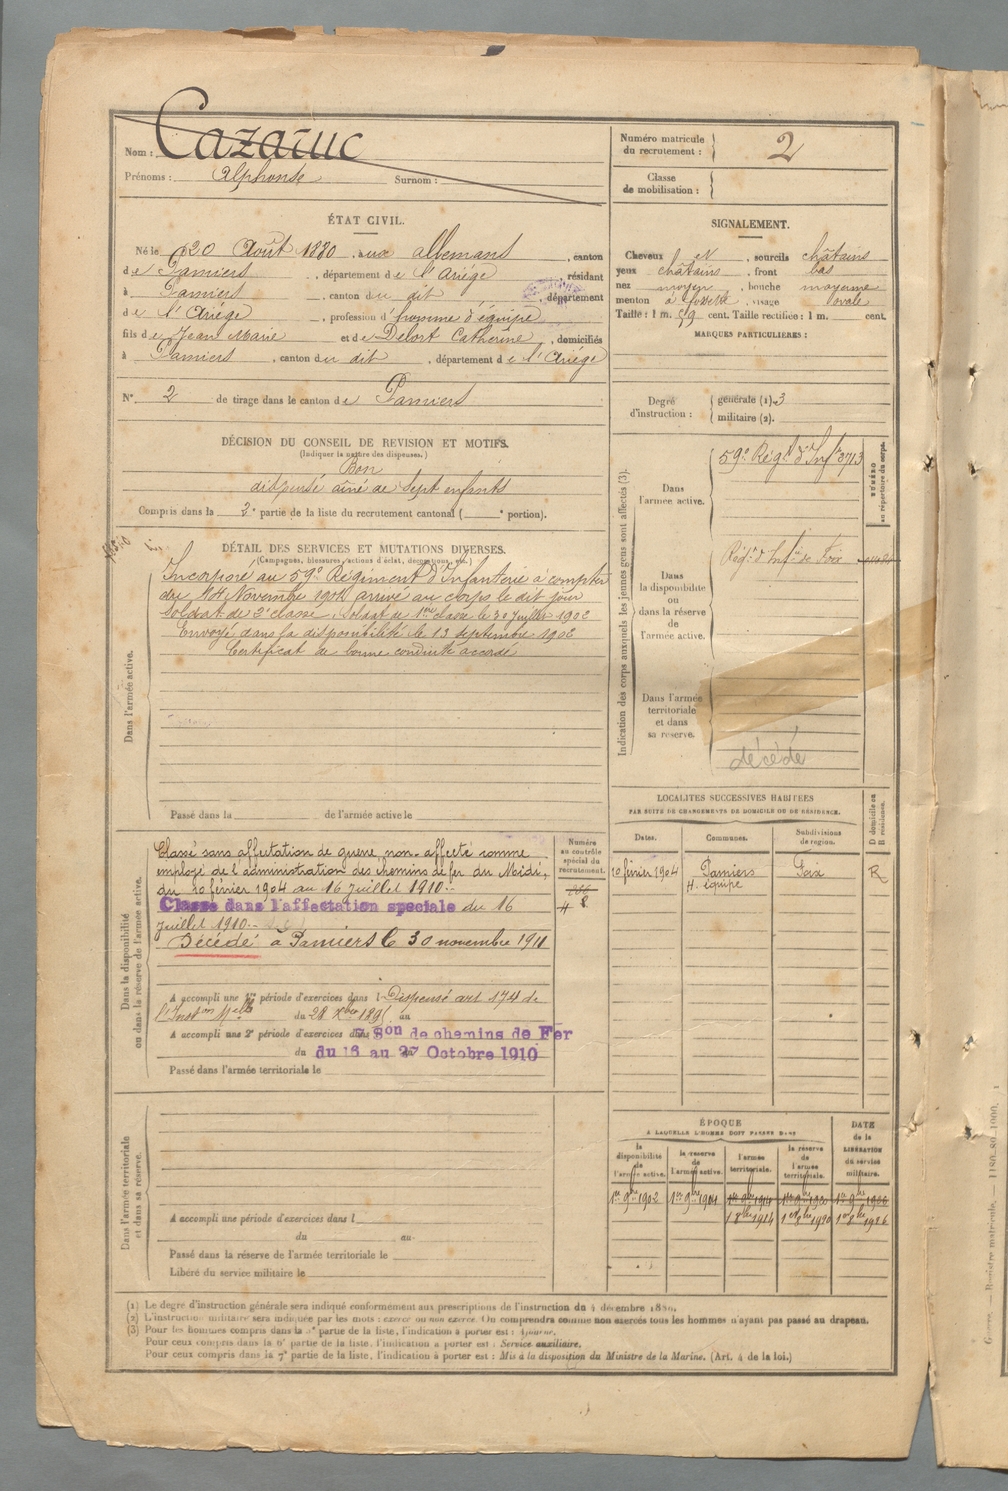 Nom :
Prénoms : Alphonse Surnom :
Numéro matricule
du recrutement : 2
Classe
de mobilisation :
ÉTAT CIVIL.
Né le 20 Août 1880, aux Allemans, canton
de Pamiers, département de l'Ariége, résidant
à Pamiers, canton du dit, département
de l'Ariége, profession d'homme d'équipe
fils de Jean Marie et de Delort Catherine, domiciliés
à Pamiers, canton du dit, département de l'Ariége
N° 2 de tirage dans le canton de Pamiers
SIGNALEMENT.
Cheveux et sourcils châtains
yeux châtains, front bas
nez moyen, bouche moyenne
menton à fossette, visage ovale
Taille : 1 m. 59 cent. Taille rectifiée : 1 m. cent.
MARQUES PARTICULIÈRES :
Degré
d'instruction :
générale (1). 3
militaire (2).
DÉCISION DU CONSEIL DE REVISION ET MOTIFS.
(Indiquer la nature des dispenses.)
Bon
dispensé aîné de sept enfants
Compris dans la 2e partie de la liste du recrutement cantonal ( e portion).
DÉTAIL DES SERVICES ET MUTATIONS DIVERSES.
(Campagnes, blessures, actions d'éclat, décorations, etc.)
Dans l'armée active.
Incorporé au 59e Régiment d'Infanterie à compter
du 14 Novembre 1901 arrivé au corps le dit jour
Soldat de 2e classe. Soldat de 1ère classe le 30 Juillet 1902
Envoyé dans la disponibilité le 13 septembre 1902
Certificat de bonne conduite accordé
Passé dans la de l'armée active le
Indication des corps auxquels les jeunes gens sont affectés (3).
NUMÉRO
au répertoire du corps.
Dans
l'armée active.
59e Régt d'Infie 3713
Dans
la disponibilité
ou
dans la réserve
de
l'armée active.
Régt d'Infie de Foix
Dans l'armée
territoriale
et dans
sa réserve.
décédé
Dans la disponibilité
ou dans la réserve de l'armée active.
Numéro
au contrôle
spécial du
recrutement.
Classé sans affectation de guerre, non-affecté comme
employé de l'administration des chemins de fer du Midi,
du 10 février 1904 au 16 juillet 1910.-
Classé dans l'affectation spéciale du 16
juillet 1910.-
Décédé à Pamiers le 30 novembre 1911
H 8
A accompli une 1re période d'exercices dans l Dispensé art 174 de
l'Inston Melle du 28 Xbre 1895 au
A accompli une 2e période d'exercices dans Son de chemins de Fer
du 16 au 27 Octobre 1910
Passé dans l'armée territoriale le
LOCALITÉS SUCCESSIVES HABITÉES
PAR SUITE DE CHANGEMENTS DE DOMICILE OU DE RÉSIDENCE.
D domicile ou
R résidence.
Dates. Communes. Subdivisions
de région.
10 février 1904 Pamiers Foix R
H. équipe
Dans l'armée territoriale
et dans sa réserve.
A accompli une période d'exercices dans l
du au
Passé dans la réserve de l'armée territoriale le
Libéré du service militaire le
ÉPOQUE
À LAQUELLE L'HOMME DOIT PASSER DANS
DATE
de la
LIBÉRATION
du service
militaire.
la
disponibilité
de
l'armée active.
la réserve
de
l'armée active.
l'armée
territoriale.
la réserve
de
l'armée
territoriale.
1er 9bre 1902 1er 9bre 1904 1er 9bre 1914 1er 9bre 1920 1er 9bre 1926
1 8bre 1914 1er 8bre 1920 1er 8bre 1926
(1) Le degré d'instruction générale sera indiqué conformément aux prescriptions de l'instruction du 4 décembre 1889.
(2) L'instruction militaire sera indiquée par les mots : exercé ou non exercé. On comprendra comme non exercés tous les hommes n'ayant pas passé au drapeau.
(3) Pour les hommes compris dans la partie de la liste, l'indication à porter est : Ajourné.
Pour ceux compris dans la 6e partie de la liste, l'indication à porter est : Service auxiliaire.
Pour ceux compris dans la 7e partie de la liste, l'indication à porter est : Mis à la disposition du Ministre de la Marine. (Art. 4 de la loi.)